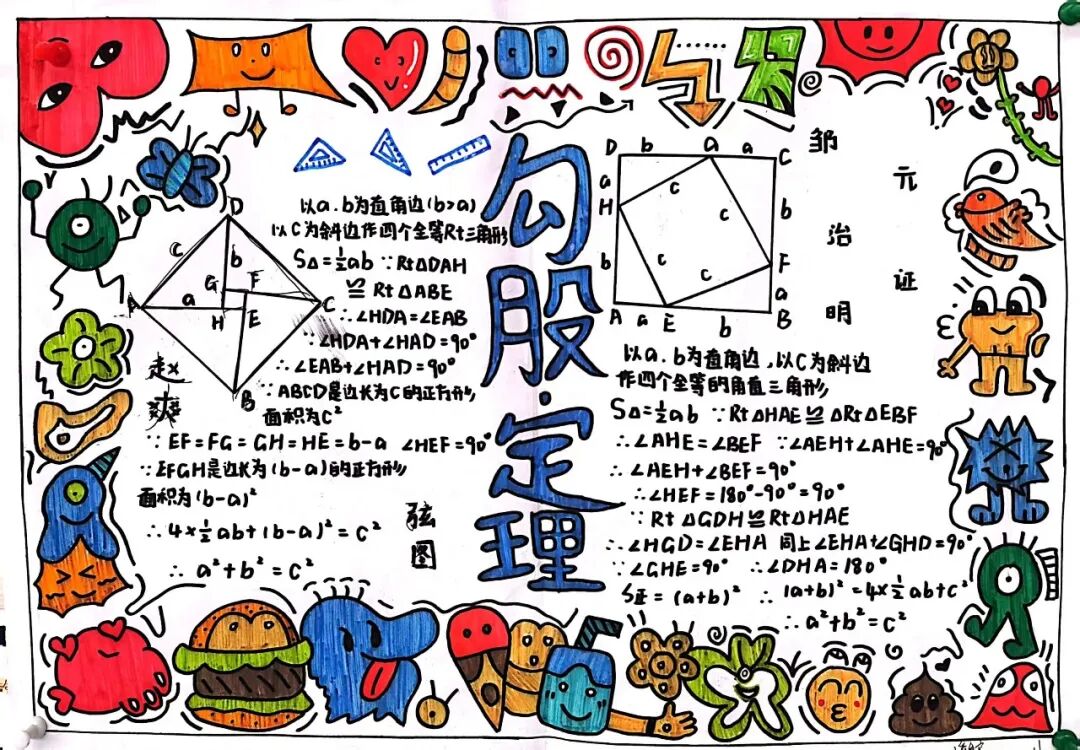 勾股定理
以a.b为直角边(b>a)
以C为斜边作四个全等Rt三角形
S△=½ab ∵Rt△DAH
≌ Rt△ABE
∴∠HDA=∠EAB
∵∠HDA+∠HAD=90°
∴∠EAB+∠HAD=90°
∵ABCD是边长为C的正方形
面积为C²
∵EF=FG=GH=HE=b-a ∠HEF=90°
∵EFGH是边长为(b-a)的正方形
面积为(b-a)²
∴4×½ab+(b-a)²=c²
∴a²+b²=c²
赵爽
弦图
D
c
b
G
F
A
a
H
E
C
B
邹元治证明
D b G a C
a
H
c
c
b
b
c
c
F
a
A a E b B
以a.b为直角边,以C为斜边
作四个全等的角直三角形
S△=½ab ∵Rt△HAE≌△Rt△EBF
∴∠AHE=∠BEF ∵∠AEH+∠AHE=90°
∴∠AEH+∠BEF=90°
∴∠HEF=180°-90°=90°
∵Rt△GDH≌Rt△HAE
∴∠HGD=∠EHA 同上∠EHA+∠GHD=90°
∵∠GHE=90° ∴∠DHA=180°
S正=(a+b)² ∴(a+b)²=4×½ab+c²
∴a²+b²=c²